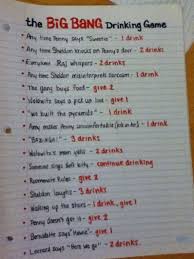 the BIG BANG Drinking Game
Any time Penny says "Sweetie" - 1 drink
Any time Sheldon knocks on Penny's door - 2 drinks
Everytime Raj whispers - 2 drinks
Any time Sheldon misinterprets sarcasm - 1 drink
The gang buys food - Give 2
Wolowitz says a pick up line - give 1
"We built the pyramids" - 1 drink
Amy makes Penny uncomfortable - 1 drink
"BAZINGA!" - 3 drinks
Wolowitz's mom yells - 2 drinks
Someone sings Soft kitty - continue drinking
Roommate Rules - give 2
Sheldon laughs - 3 drinks
Walking up the stairs - 1 drink, give 1
Penny doesn't get it - give 2
Bernadette says "Howie" - give 1
Leonard says "Here we go" - 2 drinks